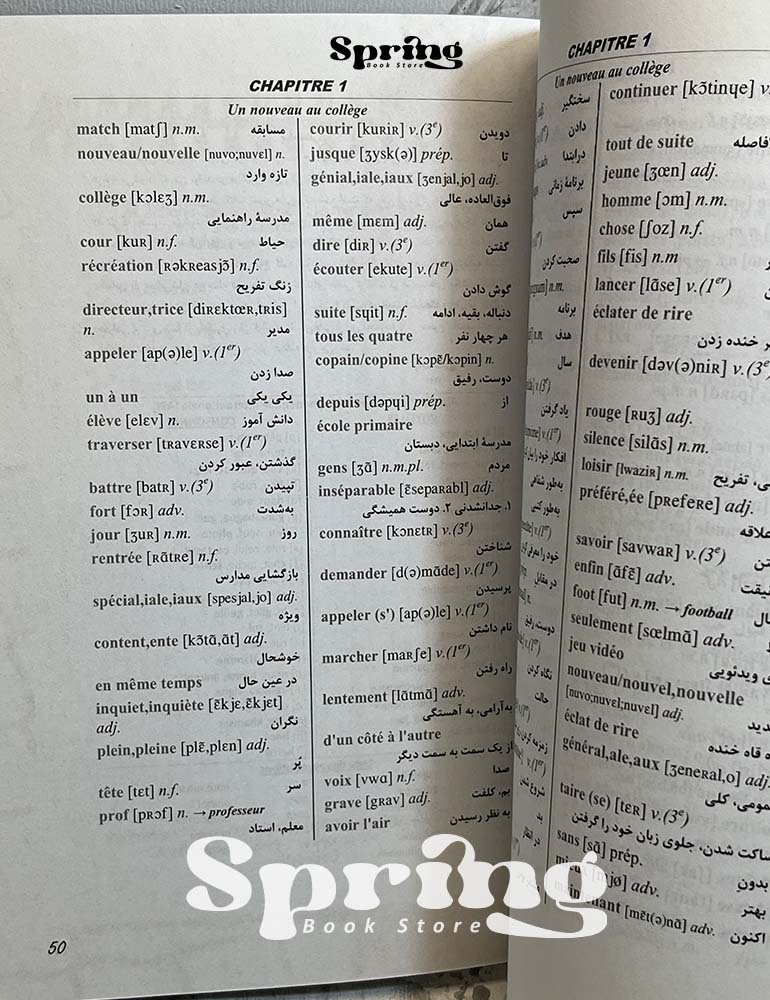 Spring
Book Store
CHAPITRE 1
Un nouveau au collège
match [matʃ] n.m. مسابقه
nouveau/nouvelle [nuvo;nuvɛl] n.
تازه وارد
collège [kɔlɛʒ] n.m.
مدرسهٔ راهنمایی
cour [kuʀ] n.f. حیاط
récréation [ʀəkʀeasjɔ̃] n.f.
زنگ تفریح
directeur,trice [diʀɛktœʀ,tʀis]
n. مدیر
appeler [ap(ə)le] v.(1er)
صدا زدن
un à un یکی یکی
élève [elɛv] n. دانش آموز
traverser [tʀavɛʀse] v.(1er)
گذشتن، عبور کردن
battre [batʀ] v.(3e) تپیدن
fort [fɔʀ] adv. به‌شدت
jour [ʒuʀ] n.m. روز
rentrée [ʀɑ̃tʀe] n.f.
بازگشایی مدارس
spécial,iale,iaux [spesjal,jo] adj.
ویژه
content,ente [kɔ̃tɑ̃,ɑ̃t] adj.
خوشحال
en même temps در عین حال
inquiet,inquiète [ɛ̃kjɛ,ɛ̃kjɛt]
adj. نگران
plein,pleine [plɛ̃,plɛn] adj.
پُر
tête [tɛt] n.f. سر
prof [pʀɔf] n. → professeur
معلم، استاد
courir [kuʀiʀ] v.(3e) دویدن
jusque [ʒysk(ə)] prép. تا
génial,iale,iaux [ʒenjal,jo] adj.
فوق‌العاده، عالی
même [mɛm] adj. همان
dire [diʀ] v.(3e) گفتن
écouter [ekute] v.(1er)
گوش دادن
suite [sɥit] n.f. دنباله، بقیه، ادامه
tous les quatre هر چهار نفر
copain/copine [kɔpɛ̃/kɔpin] n.
دوست، رفیق
depuis [dəpɥi] prép. از
école primaire
مدرسهٔ ابتدایی، دبستان
gens [ʒɑ̃] n.m.pl. مردم
inséparable [ɛ̃sepaʀabl] adj.
۱. جدانشدنی ۲. دوست همیشگی
connaître [kɔnɛtʀ] v.(3e)
شناختن
demander [d(ə)mɑ̃de] v.(1er)
پرسیدن
appeler (s') [ap(ə)le] v.(1er)
نام داشتن
marcher [maʀʃe] v.(1er)
راه رفتن
lentement [lɑ̃tmɑ̃] adv.
به‌آرامی، به آهستگی
d'un côté à l'autre
از یک سمت به سمت دیگر
voix [vwɑ] n.f. صدا
grave [gʀav] adj. بم، کلفت
avoir l'air به نظر رسیدن
50
CHAPITRE 1
Un nouveau au collège
سختگیر
دادن
درابتدا
برنامهٔ زمانی
سپس
صحبت کردن
برنامه
هدف
سال
یاد گرفتن
به‌طور شفاهی
به‌طور کتبی
در مقابل
دوست، رفیق
نگاه کردن
حالت
شروع شدن
continuer [kɔ̃tinɥe] v.
tout de suite
jeune [ʒœn] adj.
homme [ɔm] n.m.
chose [ʃoz] n.f.
fils [fis] n.m
lancer [lɑ̃se] v.(1er)
éclater de rire
خنده زدن
devenir [dəv(ə)niʀ] v.(3e
rouge [ʀuʒ] adj.
silence [silɑ̃s] n.m.
loisir [lwaziʀ] n.m. تفریح
préféré,ée [pʀefeʀe] adj.
علاقه
savoir [savwaʀ] v.(3e)
enfin [ɑ̃fɛ̃] adv.
foot [fut] n.m. → football
seulement [sœlmɑ̃] adv.
jeu vidéo
ویدئویی
nouveau/nouvel,nouvelle
[nuvo;nuvɛl;nuvɛl] adj.
éclat de rire
قاه خنده
général,ale,aux [ʒeneʀal,o] adj.
کلی
taire (se) [tɛʀ] v.(3e)
ساکت شدن، جلوی زبان خود را گرفتن
sans [sɑ̃] prép.
بدون
mieux [mjø] adv.
بهتر
maintenant [mɛ̃t(ə)nɑ̃] adv. اکنون
Spring
Book Store